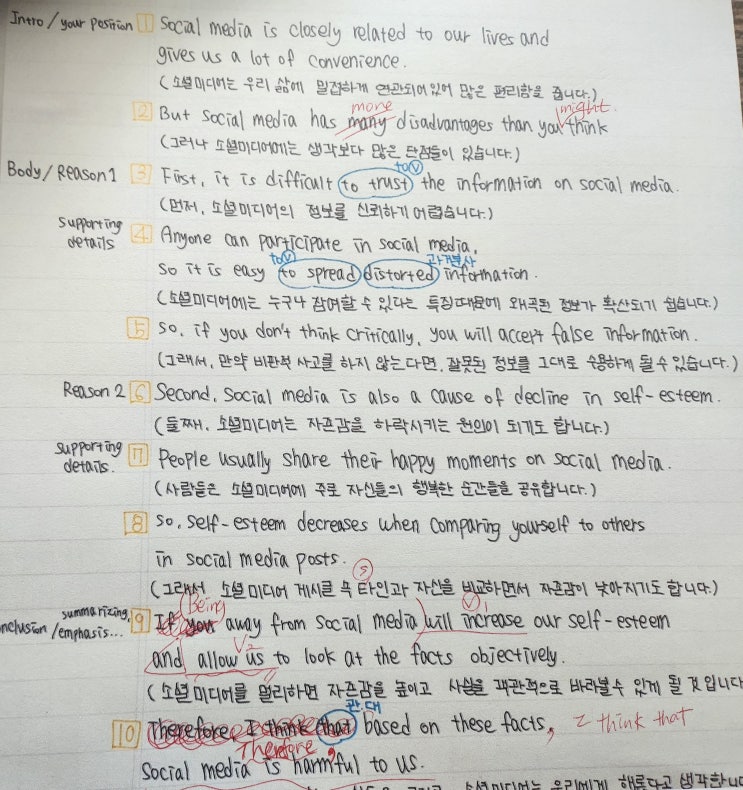 Intro / your position 1 Social media is closely related to our lives and
gives us a lot of convenience.
(소셜미디어는 우리 삶에 밀접하게 연관되어있어 많은 편리함을 줍니다.)
more might
2 But social media has many disadvantages than you think
(그러나 소셜미디어에는 생각보다 많은 단점들이 있습니다.)
to V
Body / Reason 1 3 First, it is difficult to trust the information on social media.
(먼저, 소셜미디어의 정보를 신뢰하기 어렵습니다.)
supporting details 4 Anyone can participate in social media,
to V 과거분사
so it is easy to spread distorted information.
(소셜미디어에는 누구나 참여할 수 있다는 특징때문에 왜곡된 정보가 확산되기 쉽습니다.)
5 So, if you don't think critically, you will accept false information.
(그래서, 만약 비판적 사고를 하지 않는다면, 잘못된 정보를 그대로 수용하게 될 수 있습니다.)
Reason 2 6 Second, social media is also a cause of decline in self-esteem.
(둘째, 소셜미디어는 자존감을 하락시키는 원인이 되기도 합니다.)
supporting details. 7 People usually share their happy moments on social media.
(사람들은 소셜미디어에 주로 자신들의 행복한 순간들을 공유합니다.)
8 So, self-esteem decreases when comparing yourself to others
in social media posts.
S
(그래서 소셜미디어 게시글 속 타인과 자신을 비교하면서 자존감이 낮아지기도 합니다.)
Being V1
summarizing, nclusion /emphasis... 9 If you away from social media will increase our self-esteem
V2
and allow us to look at the facts objectively.
(소셜미디어를 멀리하면 자존감을 높이고 사실을 객관적으로 바라볼수 있게 될 것입니다
관.대
10 Therefore, I think that based on these facts, I think that
Therefore,
social media is harmful to us.
소셜미디어는 우리에게 해롭다고 생각합니다